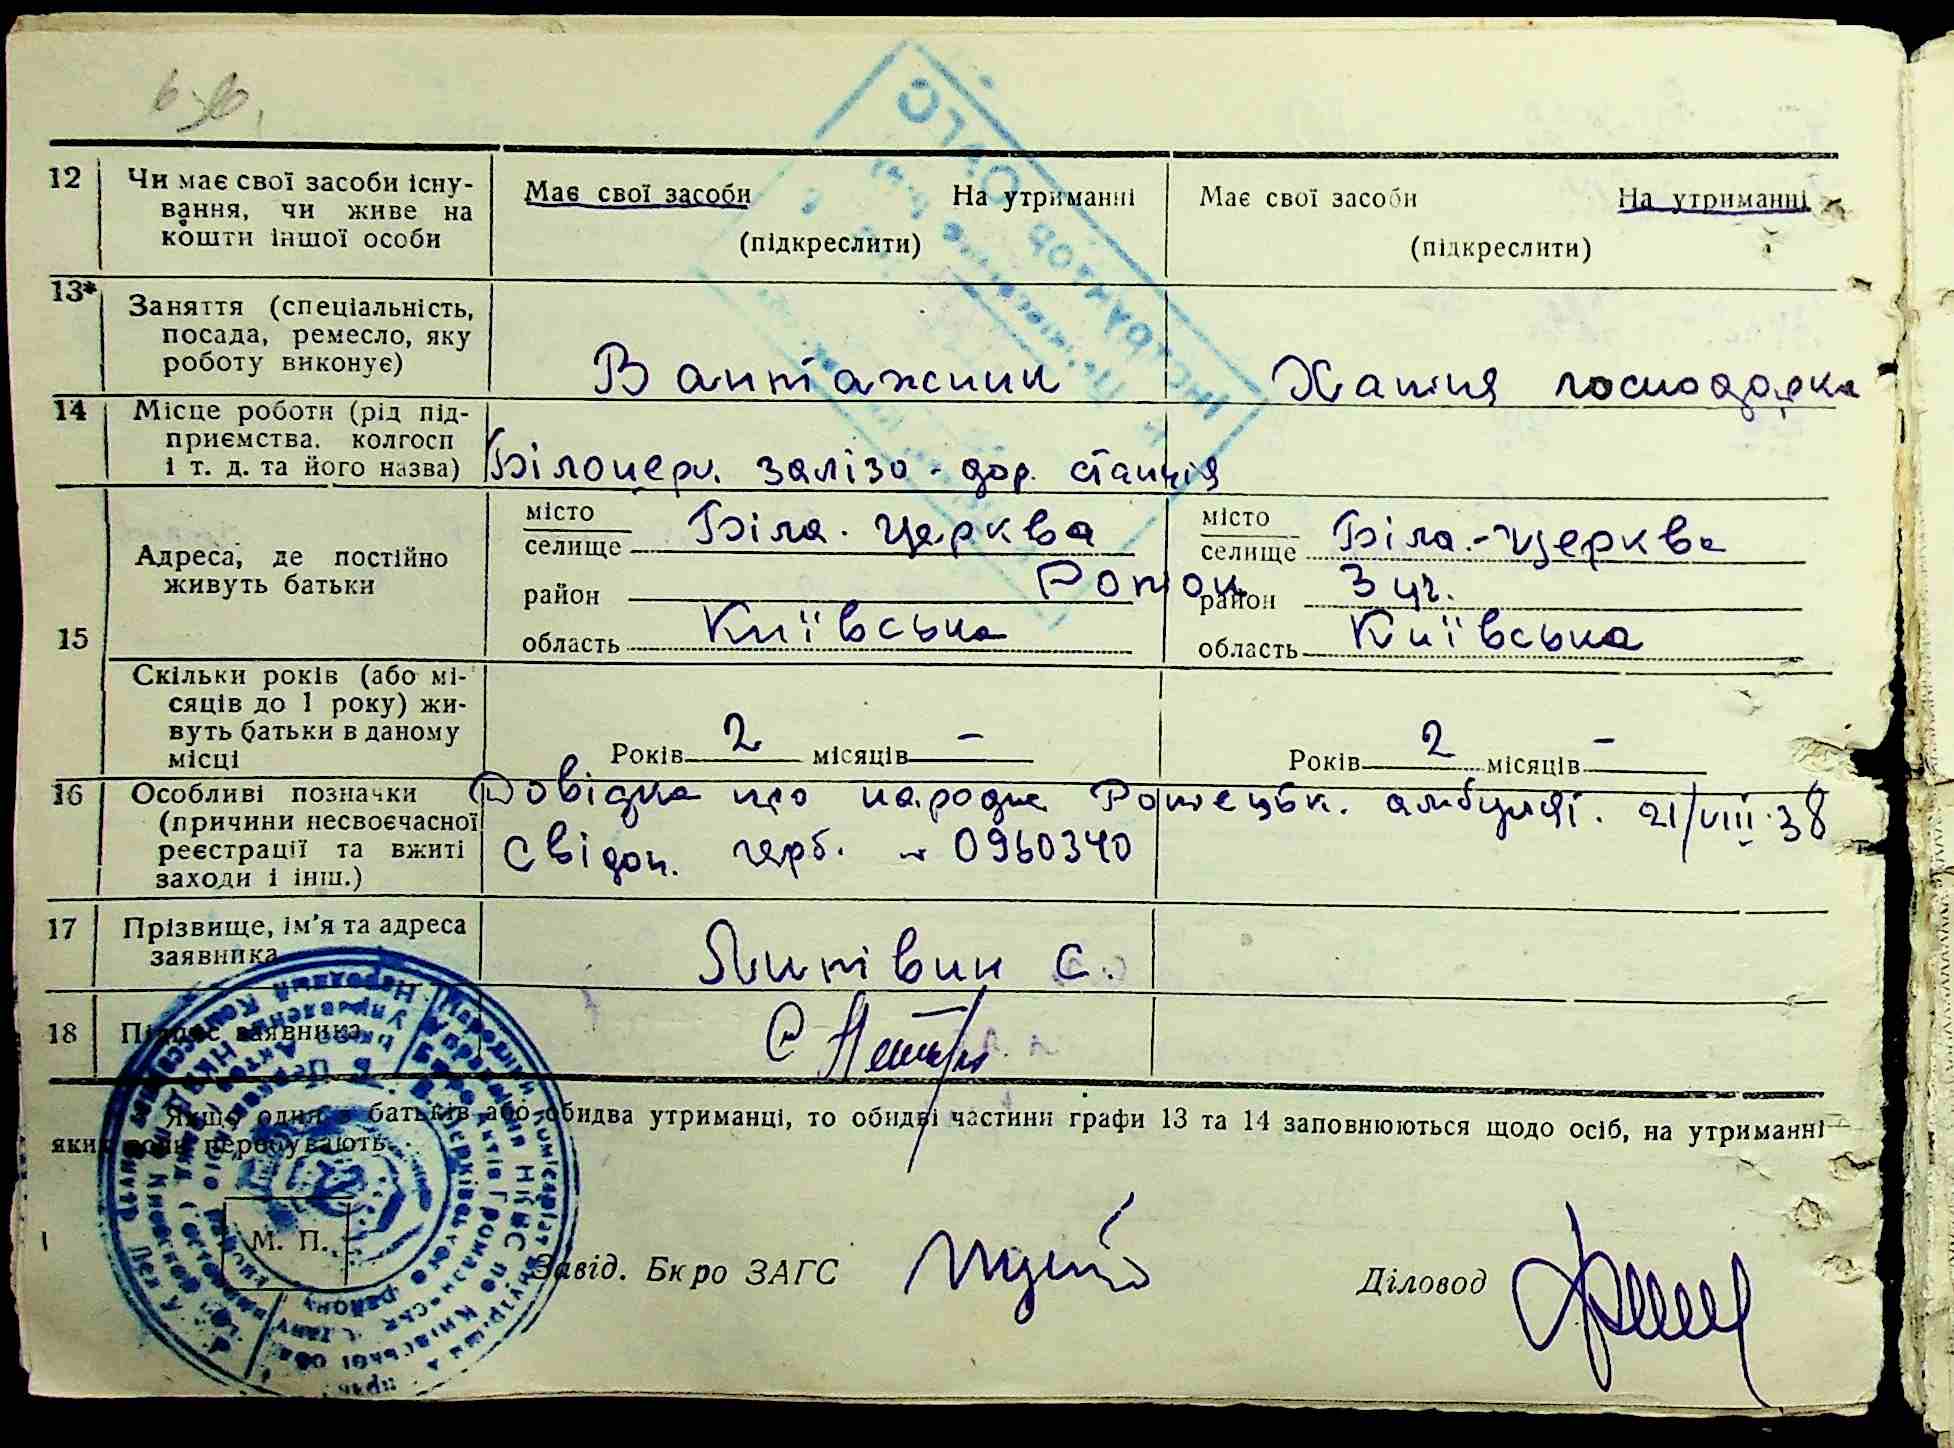 12 Чи має свої засоби існу-
вання, чи живе на
кошти іншої особи
Має свої засоби На утриманні
(підкреслити)
Має свої засоби На утриманні
(підкреслити)
13* Заняття (спеціальність,
посада, ремесло, яку
роботу виконує)
Вантажник
Хатня господарка
14 Місце роботи (рід під-
приємства, колгосп
і т. д. та його назва)
Білоцерк. залізо-дор. станція
15 Адреса, де постійно
живуть батьки
місто
селище Біла-Церква
район Роток
область Київська
місто
селище Біла-Церква
район 3 уч.
область Київська
Скільки років (або мі-
сяців до 1 року) жи-
вуть батьки в даному
місці
Років 2 місяців –
Років 2 місяців –
16 Особливі позначки
(причини несвоєчасної
реєстрації та вжиті
заходи і інш.)
Довідка про народж. Ротецьк. амбулят. 21/VIII-38
Свідоц. герб. № 0960340
17 Прізвище, ім'я та адреса
заявника
Литвин С.
18 Підпис заявника
Якщо один з батьків або обидва утриманці, то обидві частини графи 13 та 14 заповнюються щодо осіб, на утриманні
яких вони перебувають.
М. П.
Завід. Бюро ЗАГС
Діловод